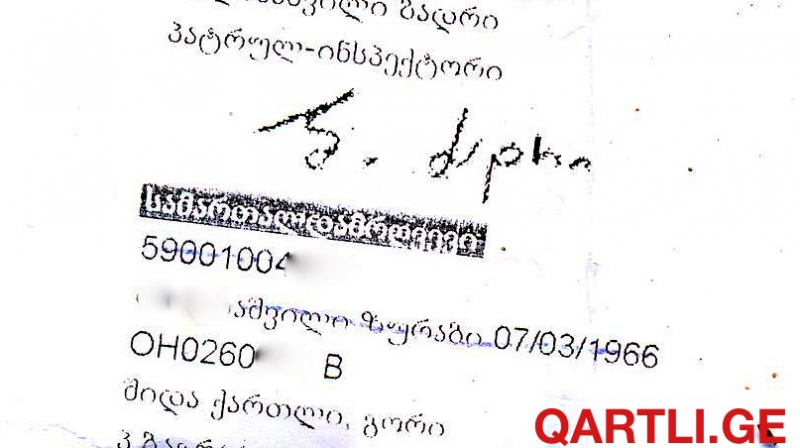 ბადრი
პატრულ-ინსპექტორი
სამართალდამრღვევი
59001004
აშვილი ზურაბი 07/03/1966
OH0260 B
შიდა ქართლი, გორი
QARTLI.GE